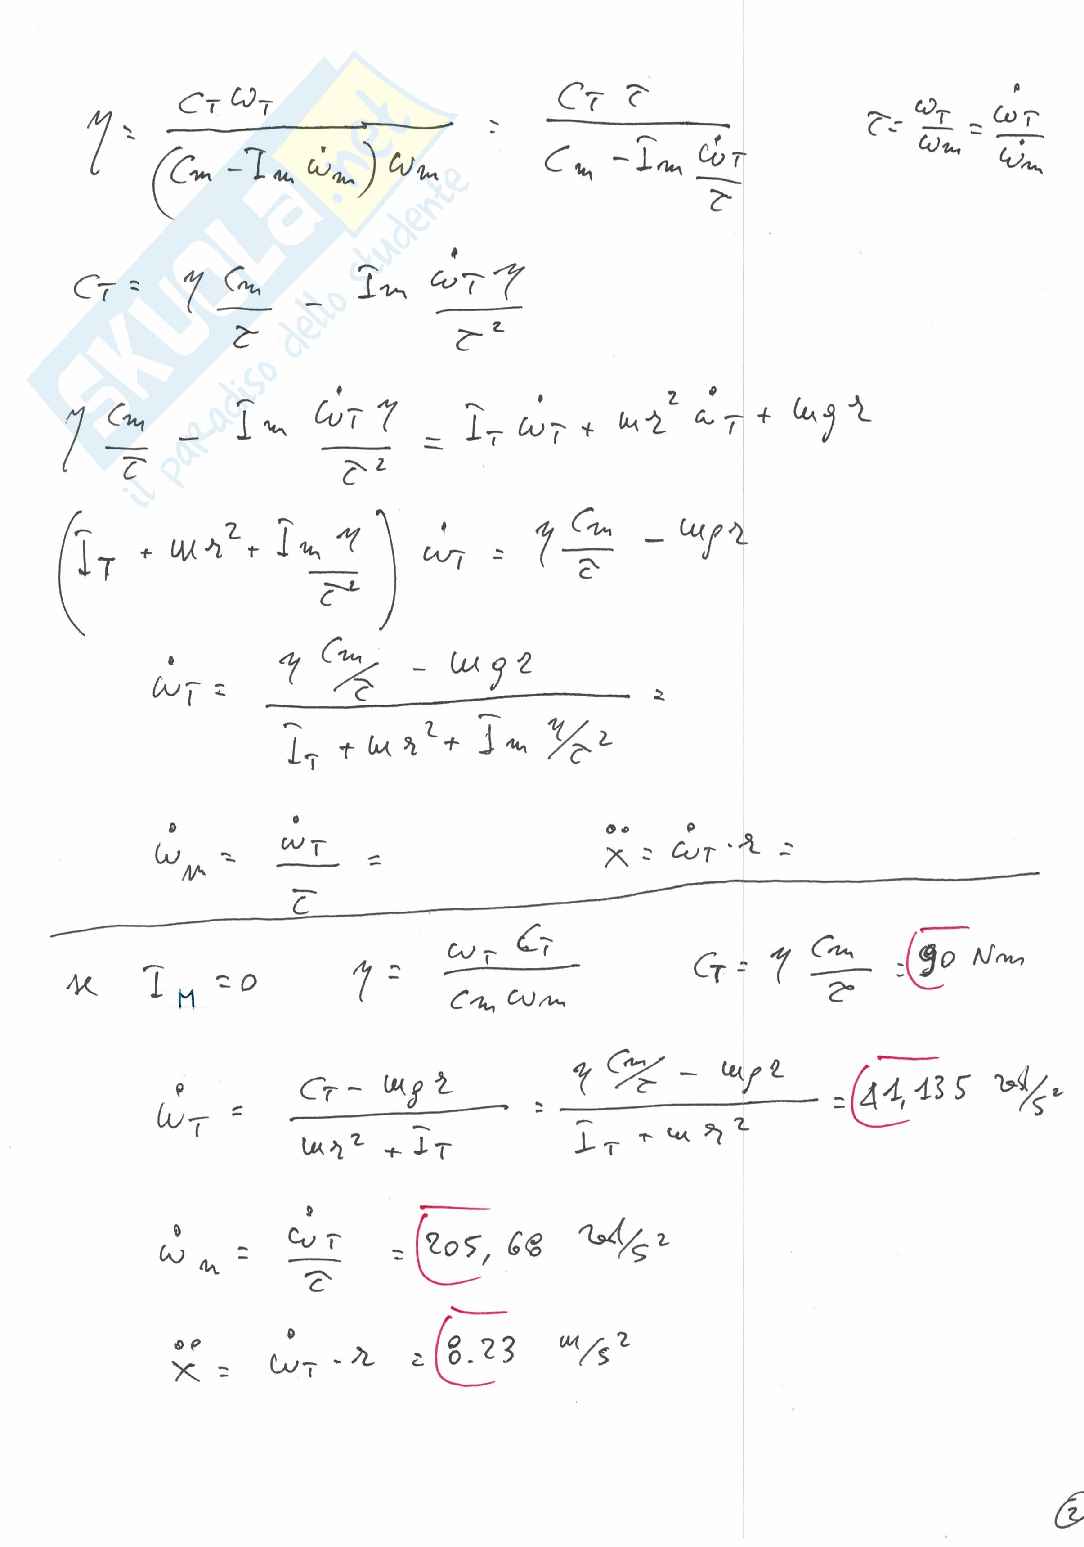 η = C_T ω_T / ((C_m − I_m ω̇_m) ω_m) = C_T τ / (C_m − I_m ω̇_T/τ)    τ = ω_T/ω_m = ω̇_T/ω̇_m
C_T = η C_m/τ − I_m ω̇_T η/τ²
η C_m/τ − I_m ω̇_T η/τ² = I_T ω̇_T + m r² ω̇_T + m g r
(I_T + m r² + I_m η/τ²) ω̇_T = η C_m/τ − m g r
ω̇_T = (η C_m/τ − m g r) / (I_T + m r² + I_m η/τ²) =
ω̇_m = ω̇_T/τ =    ẍ = ω̇_T · r =
se I_M = 0    η = ω_T C_T / (C_m ω_m)    C_T = η C_m/τ = 90 Nm
ω̇_T = (C_T − m g r) / (m r² + I_T) = (η C_m/τ − m g r) / (I_T + m r²) = 41,135 rad/s²
ω̇_m = ω̇_T/τ = 205,68 rad/s²
ẍ = ω̇_T · r = 8.23 m/s²
2
SKUOLA.net
il paradiso dello studente